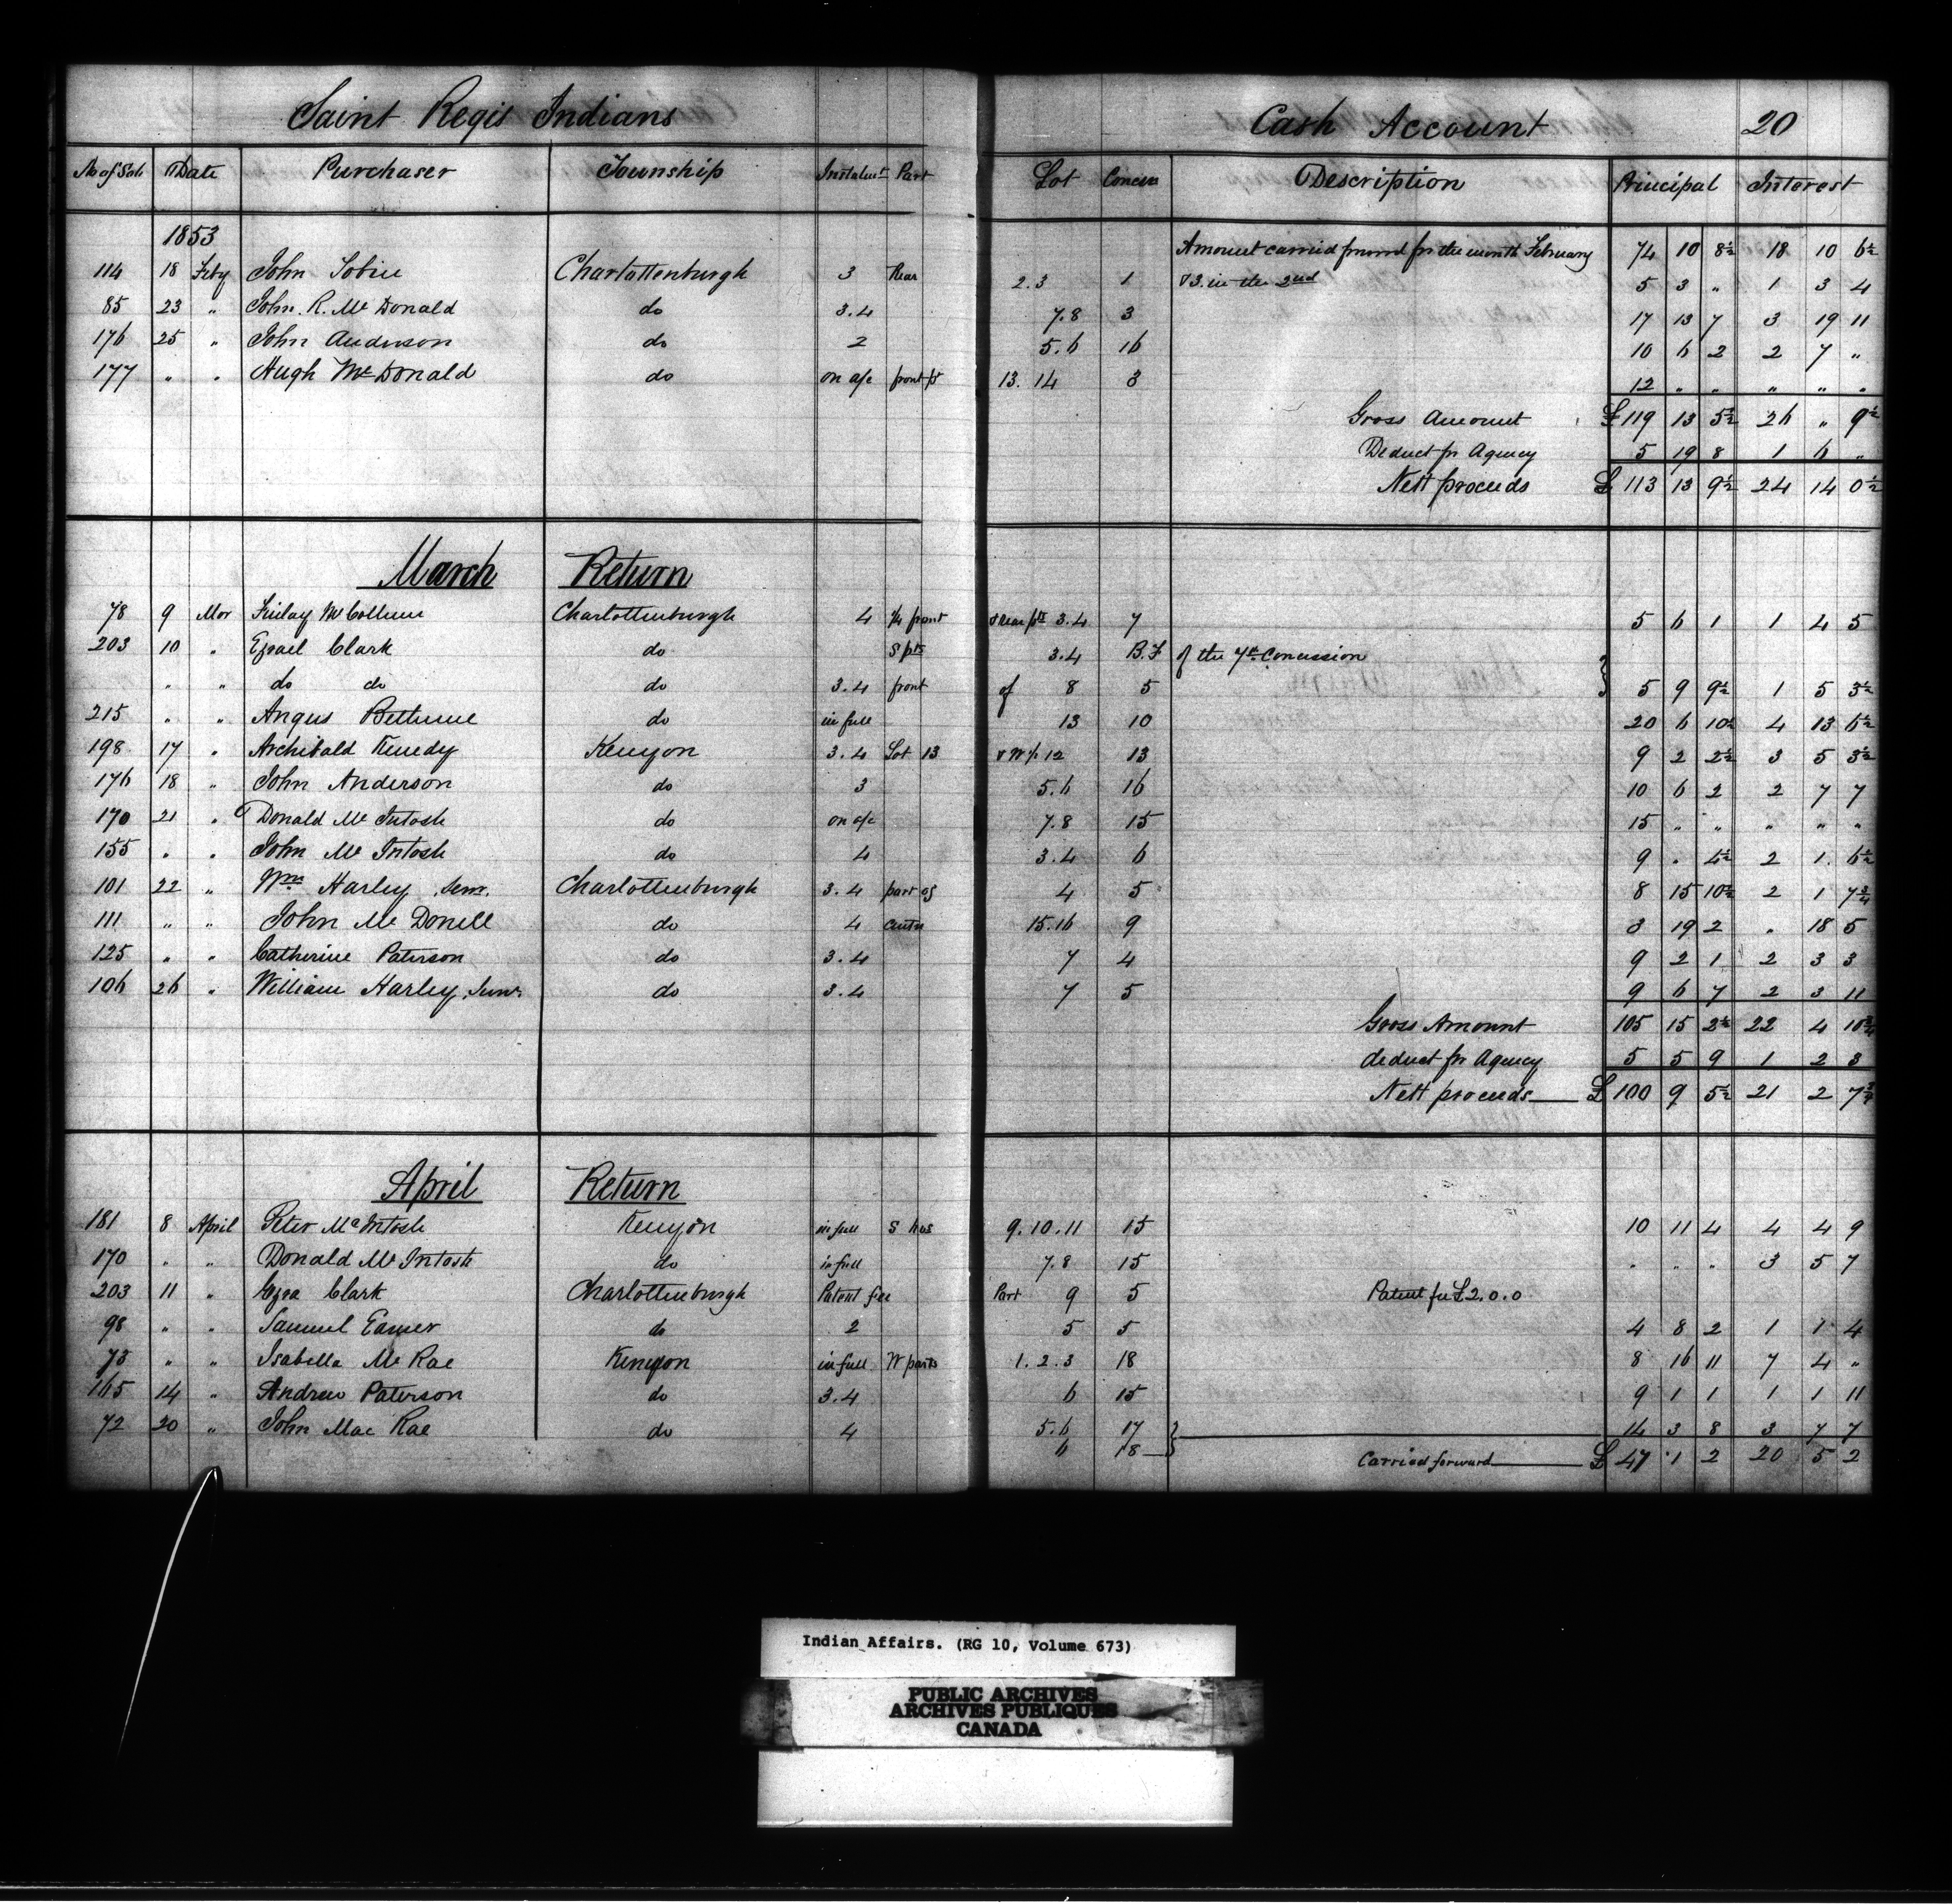 Saint Regis Indians Cash Account 20
No of Sale Date Purchaser Township Instalmt Part Lot Concess Description Principal Interest
1853 Amount carried forward for the month February 74 10 8½ 18 10 6½
114 18 Feby John Tobin Charlottenburgh 3 Rear 2.3 1 & 3. in the 2nd 5 3 " 1 3 4
85 23 " John. R. Mc Donald do 3.4 7.8 3 17 13 7 3 19 11
176 25 " John Anderson do 2 5.6 16 10 6 2 2 7 "
177 " " Hugh Mc Donald do on a/c front pt 13. 14 3 12 " " " " "
Gross Amount £ 119 13 5½ 26 " 9½
Deduct for Agency 5 19 8 1 6 "
Nett proceeds £ 113 13 9½ 24 14 0½
March Return
78 9 Mar Finlay McCollum Charlottenburgh 4 ¼ front & rear pts 3.4 7 5 6 1 1 4 5
203 10 " Ezrael Clark do S pts 3.4 B.F of the 7th Concession
" " do do do 3.4 front of 8 5 5 9 9½ 1 5 3½
215 " " Angus Bethune do in full 13 10 20 6 10½ 4 13 6½
198 17 " Archibald Kenedy Kenyon 3.4 Lot 13 & W ½ 12 13 9 2 2½ 3 5 3½
176 18 " John Anderson do 3 5.6 16 10 6 2 2 7 7
170 21 " Donald Mc Intosh do on a/c 7.8 15 15 " " " " "
155 " " John Mc Intosh do 4 3.4 6 9 " 4½ 2 1. 6½
101 22 " Wm Harley Senr. Charlottenburgh 3.4 part of 4 5 8 15 10½ 2 1 7¾
111 " " John Mc Donell do 4 centre 15.16 9 3 19 2 " 18 5
125 " " Catherine Paterson do 3.4 7 4 9 2 1 2 3 3
106 26 " William Harley, Junr do 3.4 7 5 9 6 7 2 3 11
Gross Amount 105 15 2½ 22 4 10¾
deduct for Agency 5 5 9 1 2 3
Nett proceeds £ 100 9 5½ 21 2 7¾
April Return
181 8 April Peter Mc Intosh Kenyon in full S hvs 9. 10. 11 15 10 11 4 4 4 9
170 " " Donald Mc Intosh do in full 7.8 15 " " " 3 5 7
203 11 " Ezra Clark Charlottenburgh Patent fee Part 9 5 Patent fee £2.0.0
98 " " Samuel Eamer do 2 5 5 4 8 2 1 1 4
73 " " Isabella Mc Rae Kenyon in full W parts 1. 2. 3 18 8 16 11 7 4 "
165 14 " Andrew Paterson do 3.4 6 15 9 1 1 1 1 11
72 20 " John Mac Rae do 4 5.6 17 14 3 8 3 7 7
6 18 Carried forward £ 47 1 2 20 5 2
Indian Affairs. (RG 10, Volume 673)
PUBLIC ARCHIVES
ARCHIVES PUBLIQUES
CANADA